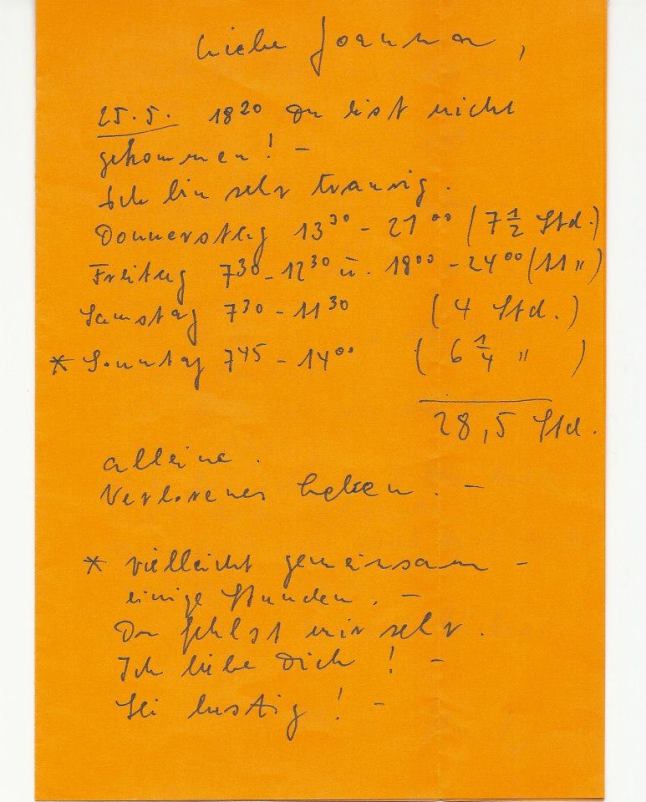 Liebe Joanna,
25.5. 18²⁰ Du bist nicht
gekommen! –
Ich bin sehr traurig.
Donnerstag 13³⁰ – 21⁰⁰ (7 1/2 Std.)
Freitag 7³⁰ – 12³⁰ u. 18⁰⁰ – 24⁰⁰ (11 〃)
Samstag 7³⁰ – 11³⁰ (4 Std.)
* Sonntag 7⁴⁵ – 14⁰⁰ (6 1/4 〃 )
28,5 Std.
alleine.
Verlorenes Leben. –
* vielleicht gemeinsam –
einige Stunden. –
Du fehlst mir sehr.
Ich liebe Dich! –
Sei lustig! –